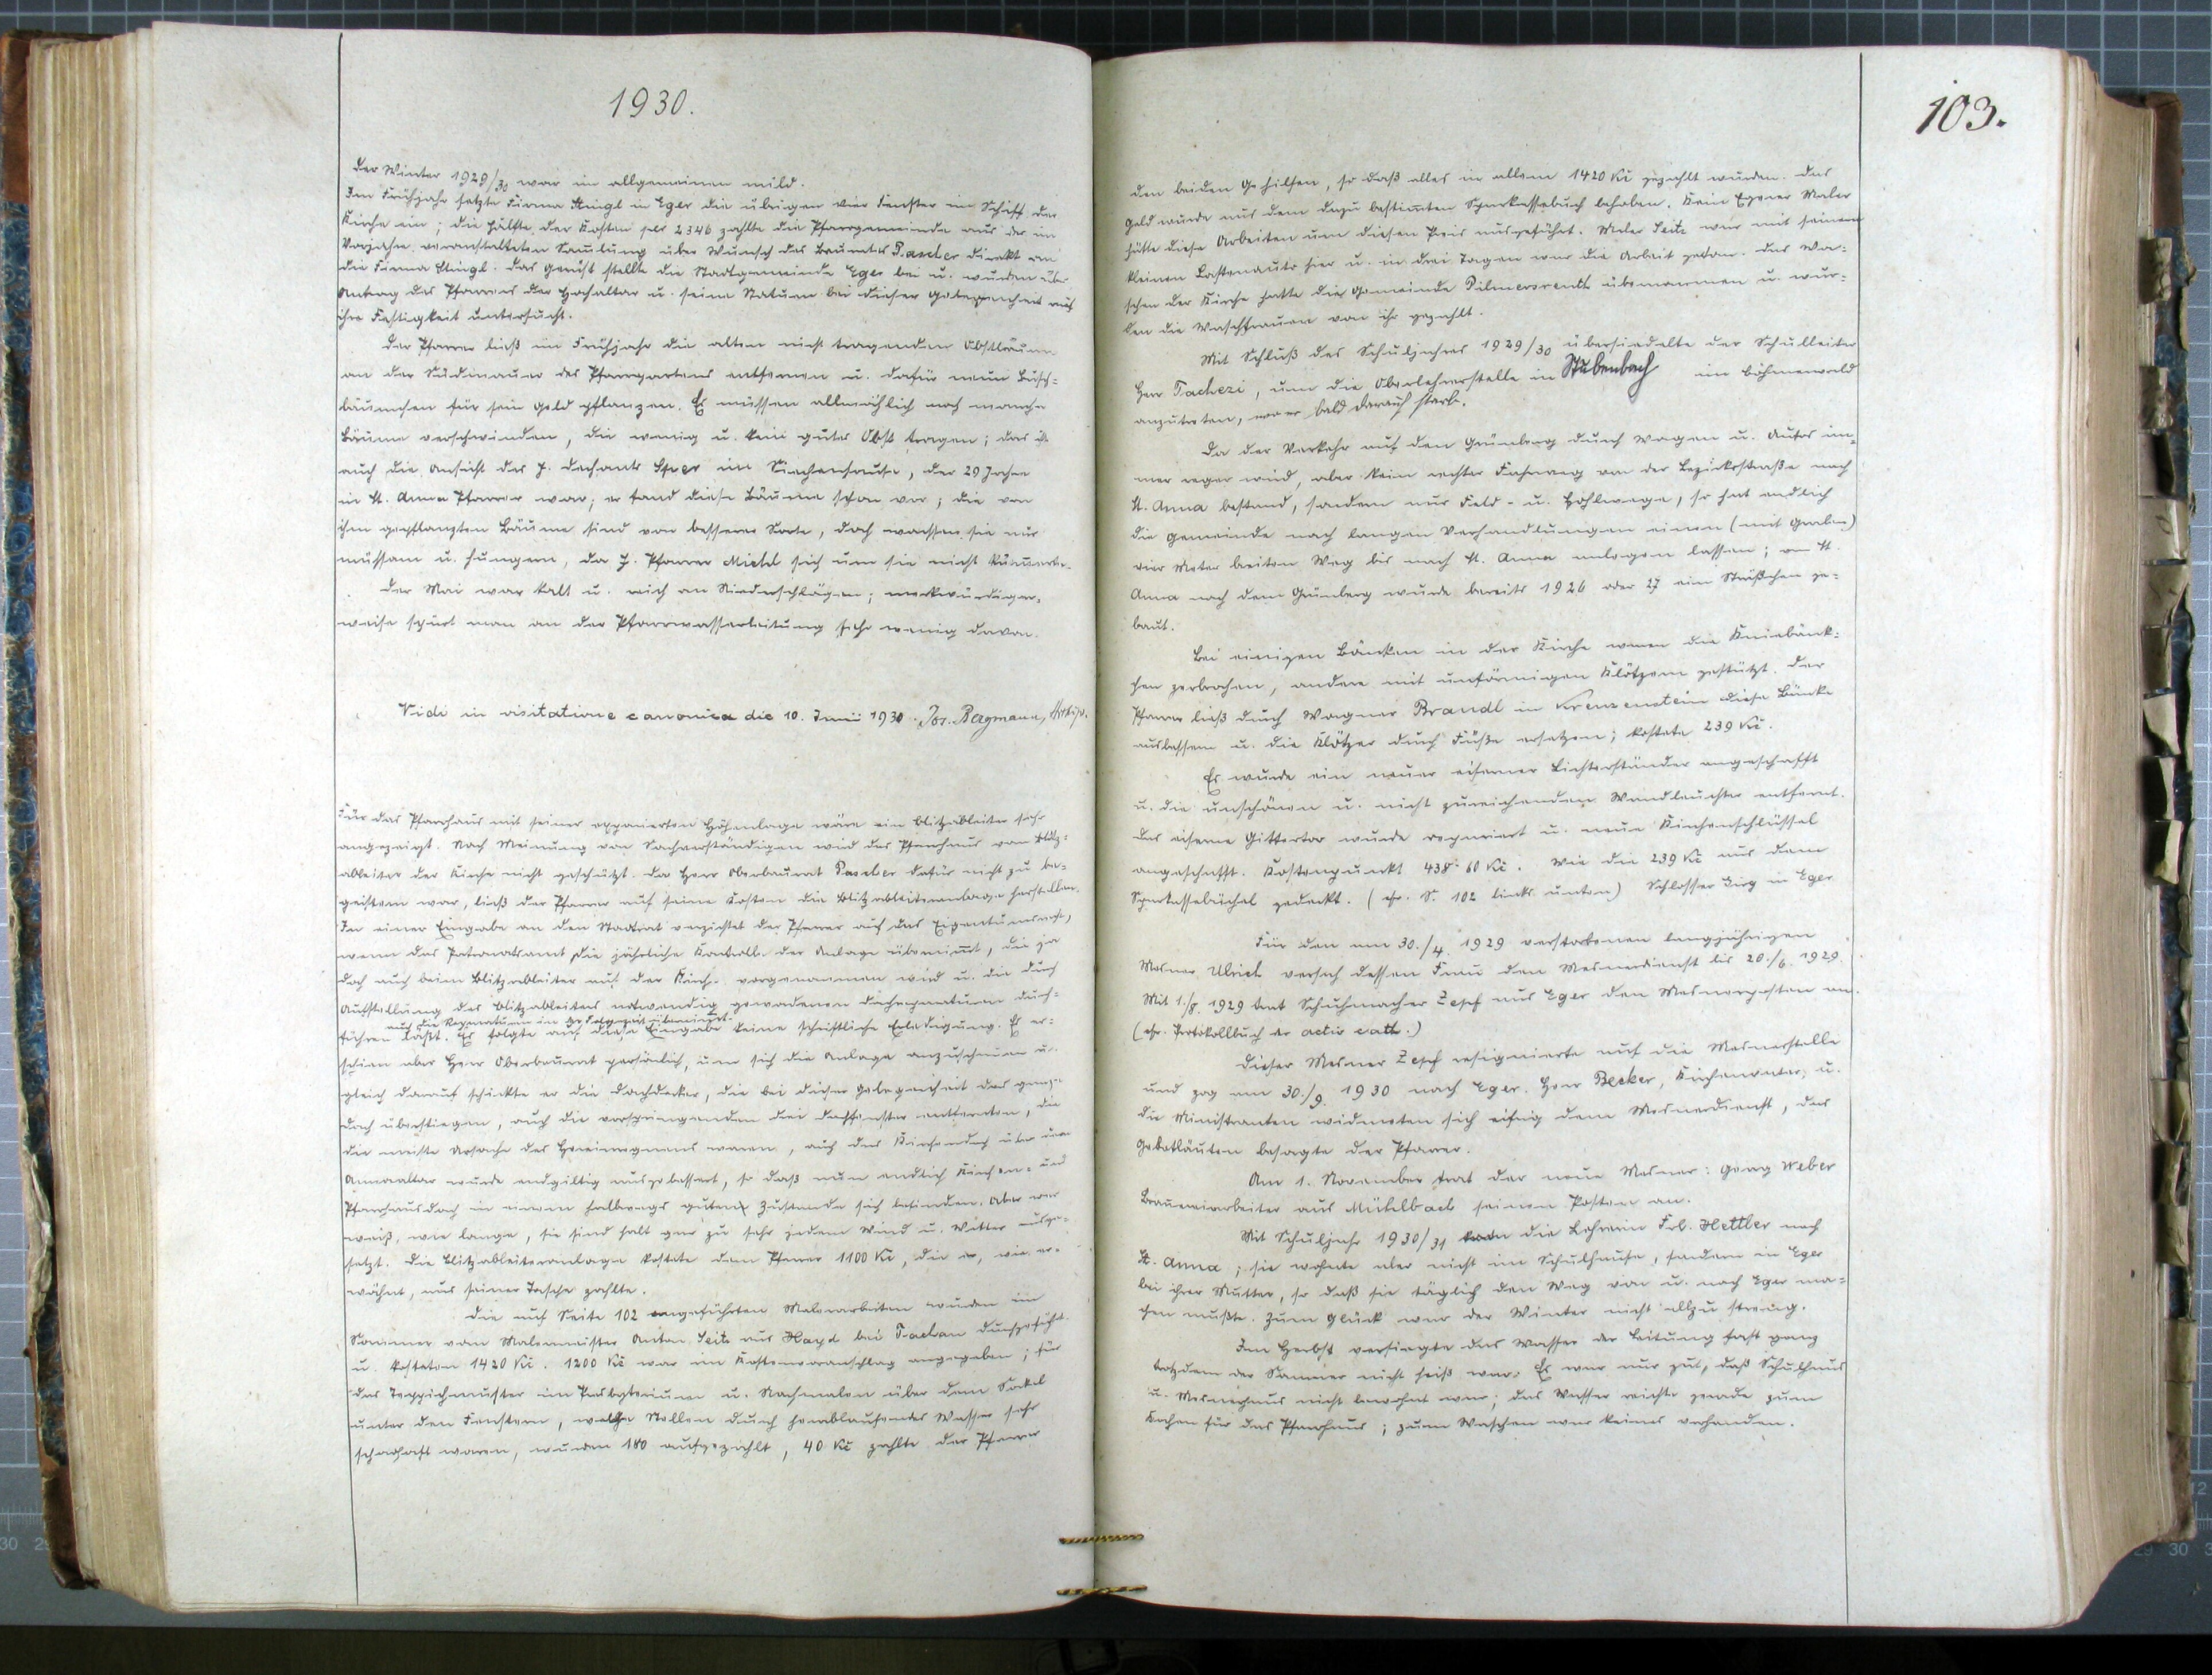 1930.
Der Winter 1929/30 war im allgemeinen mild.
Im Frühjahr setzte Firma Stingl in Eger die übrigen vier Fenster im Schiff der
Kirche ein; die Hälfte der Kosten per 2346 zahlte die Pfarrgemeinde aus der im
Vorjahre veranstalteten Samlung über Wunsch des Bauamtes Pascher direkt an
die Firma Stingl. Das Gerüst stellte die Stadtgemeinde Eger bei u. wurden über
Antrag des Pfarrers der Hochaltar u. seine Statuen bei dieser Gelegenheit auf
ihre Festigkeit untersucht.
Der Pfarrer ließ im Frühjahr die alten nicht tragenden Obstbäume
an der Südmauer des Pfarrgartens entfernen u. dafür neun Busch-
bäumchen für sein Geld pflanzen. Es müssen allmählich noch manche
Bäume verschwinden, die wenig u. kein gutes Obst tragen; das ist
auch die Ansicht des H. Dechants im Siechenhause, der 29 Jahre
in St. Anna Pfarrer war; er fand diese Bäume schon vor; die von
ihm gepflanzten Bäume sind von besserer Sorte, doch wachsen sie nur
mühsam u. hungern, da H. Pfarrer Michl sich um sie nicht kümmerte.
Der Mai war kalt u. reich an Niederschlägen; merkwürdiger-
weise spürt man an der Pfarrwasserleitung sehr wenig davon.
Vidi in visitatione canonica die 10. Junii 1930. Jos. Bergmann,
Für das Pfarrhaus mit seiner exponierten Höhenlage wäre ein Blitzableiter sehr
angezeigt. Nach Meinung von Sachverständigen wird das Pfarrhaus vom Blitz-
ableiter der Kirche nicht geschützt. Da Herr Oberbaurat Pascher dafür nicht zu be-
geistern war, ließ der Pfarrer auf seine Kosten die Blitzableiteranlage herstellen.
In einer Eingabe an den Stadtrat verzichtet der Pfarrer auf das Eigentumsrecht,
wenn das Patronatsamt die jährliche Kontrolle der Anlage übernimt, die ja
doch auch beim Blitzableiter auf der Kirche vorgenommen wird u. die durch
Aufstellung des Blitzableiters notwendig gewordenen Dachreparaturen durch-
auch die Reparaturen in der Folgezeit übernimt.
führen läßt. Es folgte auf diese Eingabe keine schriftliche Erledigung. Es er-
schien aber Herr Oberbaurat persönlich, um sich die Anlage anzuschauen u.
gleich darauf schickte er die Dachdecker, die bei dieser Gelegenheit das ganze
Dach überstiegen, auch die vorspringenden drei Dachfenster entfernten, die
die meiste Ursache des Hereinregnens waren, auch das Kirchendach über dem
Annaaltar wurde endgiltig ausgebessert, so daß nun endlich Kirchen- und
Pfarrhausdach in einem halbwegs guten Zustande sich befinden. Aber wer
weiß, wie lange, sie sind halt gar zu sehr jedem Wind u. Wetter ausge-
setzt. Die Blitzableiteranlage kostete dem Pfarrer 1100 Kč, die er, wie er-
wähnt, aus seiner Tasche zahlte.
Die auf Seite 102 angeführten Malerarbeiten wurden im
Sommer vom Malermeister Anton Seitz aus Hayd bei Tachau durchgeführt
u. kosteten 1420 Kč. 1200 Kč war im Kostenvoranschlag angegeben; für
das Teppichmuster im Presbyterium u. Nachmalen über dem Sockel
unter den Fenstern, welche Stellen durch herablaufendes Wasser sehr
schadhaft waren, wurden 180 aufgezahlt, 40 Kč zahlte der Pfarrer
103.
den beiden Gehilfen, so daß alles in allem 1420 Kč gezahlt wurden. Das
Geld wurde aus dem dazu bestimten Sparkassebuch behoben. Kein Egerer Maler
hätte diese Arbeiten um diesen Preis ausgeführt. Maler Seitz war mit seinem
kleinen Lastenauto hier u. in drei Tagen war die Arbeit getan. Das Wa-
schen der Kirche hatte die Gemeinde Pilmersreuth übernommen u. wur-
den die Waschfrauen von ihr gezahlt.
Mit Schluß des Schuljahres 1929/30 übersiedelte der Schulleiter
Herr Tachezi, um die Oberlehrerstelle in Stubenbach im Böhmerwald
anzutreten, wo er bald darauf starb.
Da der Verkehr auf den Grünberg durch Wagen u. Autos im-
mer reger wird, aber kein rechter Fahrweg von der Bezirksstraße nach
St. Anna bestand, sondern nur Feld- u. Hohlwege, so hat endlich
die Gemeinde nach langen Verhandlungen einen (mit Graben)
vier Meter breiten Weg bis nach St. Anna anlegen lassen; von St.
Anna nach dem Grünberg wurde bereits 1926 oder 27 ein Sträßchen ge-
baut.
Bei einigen Bänken in der Kirche waren die Kniebänk-
chen zerbrochen, andere mit unförmigen Klötzern gestützt. Der
Pfarrer ließ durch Wagner Brandl in Kreuzenstein diese Bänke
ausbessern u. die Klötzer durch Füße ersetzen; kostete 239 Kč.
Es wurde ein neuer eiserner Lichterständer angeschafft
u. die unschönen u. nicht zureichenden Wandleuchter entfernt.
Das eiserne Gittertor wurde repariert u. neue Kirchenschlüssel
angeschafft. Kostenpunkt 438·60 Kč. Wie die 239 Kč aus dem
Sparkassebüchel gedeckt. (cfr. S. 102 links unten) Schlosser in Eger
Für den am 30./4. 1929 verstorbenen langjährigen
Mesner Ulrich versah dessen Frau den Mesnerdienst bis 20./6. 1929.
Mit 1./8. 1929 trat Schuhmacher Zepf aus Eger den Mesnerposten an.
(cfr. Protokollbuch der actio cath.)
Dieser Mesner Zepf resignierte auf die Mesnerstelle
und zog am 30./9. 1930 nach Eger. Herr Becker, Kirchenvater, u.
die Ministranten widmeten sich eifrig dem Mesnerdienst, das
Gebetläuten besorgte der Pfarrer.
Am 1. November trat der neue Mesner: Georg Weber
Brauereiarbeiter aus Mühlbach seinen Posten an.
Mit Schuljahr 1930/31 kam die Lehrerin Frl. Hettler nach
St. Anna; sie wohnte aber nicht im Schulhause, sondern in Eger
bei ihrer Mutter, so daß sie täglich den Weg von u. nach Eger ma-
chen mußte. Zum Glück war der Winter nicht allzu streng.
Im Herbst versiegte das Wasser der Leitung fast ganz
trotzdem der Sommer nicht heiß war. Es war nur gut, daß Schulhaus
u. Mesnerhaus nicht bewohnt war; das Wasser reichte gerade zum
Kochen für das Pfarrhaus; zum Waschen war keines vorhanden.